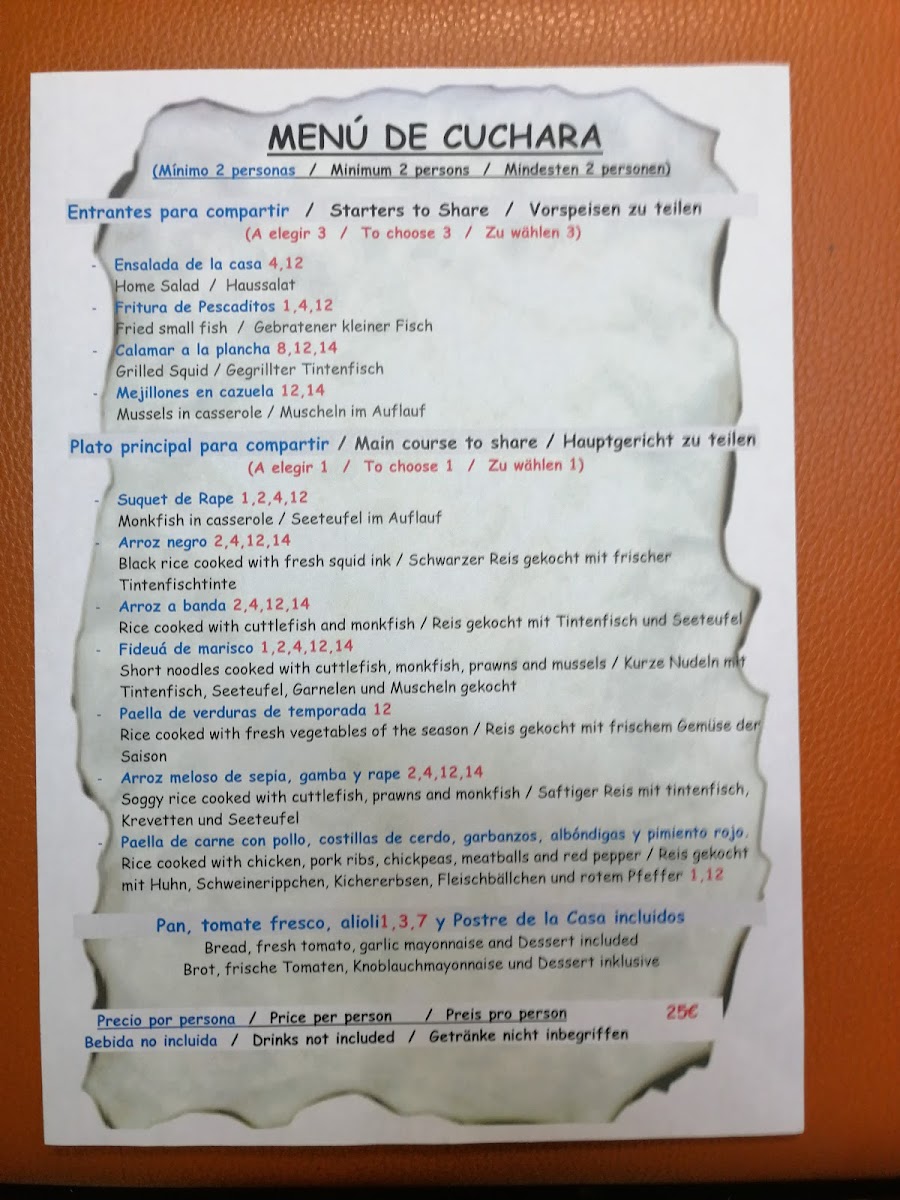 MENÚ DE CUCHARA
(Mínimo 2 personas / Minimum 2 persons / Mindesten 2 personen)
Entrantes para compartir / Starters to Share / Vorspeisen zu teilen
(A elegir 3 / To choose 3 / Zu wählen 3)
- Ensalada de la casa 4,12
Home Salad / Haussalat
- Fritura de Pescaditos 1,4,12
Fried small fish / Gebratener kleiner Fisch
- Calamar a la plancha 8,12,14
Grilled Squid / Gegrillter Tintenfisch
- Mejillones en cazuela 12,14
Mussels in casserole / Muscheln im Auflauf
Plato principal para compartir / Main course to share / Hauptgericht zu teilen
(A elegir 1 / To choose 1 / Zu wählen 1)
- Suquet de Rape 1,2,4,12
Monkfish in casserole / Seeteufel im Auflauf
- Arroz negro 2,4,12,14
Black rice cooked with fresh squid ink / Schwarzer Reis gekocht mit frischer
Tintenfischtinte
- Arroz a banda 2,4,12,14
Rice cooked with cuttlefish and monkfish / Reis gekocht mit Tintenfisch und Seeteufel
- Fideuá de marisco 1,2,4,12,14
Short noodles cooked with cuttlefish, monkfish, prawns and mussels / Kurze Nudeln mit
Tintenfisch, Seeteufel, Garnelen und Muscheln gekocht
- Paella de verduras de temporada 12
Rice cooked with fresh vegetables of the season / Reis gekocht mit frischem Gemüse der
Saison
- Arroz meloso de sepia, gamba y rape 2,4,12,14
Soggy rice cooked with cuttlefish, prawns and monkfish / Saftiger Reis mit tintenfisch,
Krevetten und Seeteufel
- Paella de carne con pollo, costillas de cerdo, garbanzos, albóndigas y pimiento rojo.
Rice cooked with chicken, pork ribs, chickpeas, meatballs and red pepper / Reis gekocht
mit Huhn, Schweinerippchen, Kichererbsen, Fleischbällchen und rotem Pfeffer 1,12
Pan, tomate fresco, alioli1,3,7 y Postre de la Casa incluidos
Bread, fresh tomato, garlic mayonnaise and Dessert included
Brot, frische Tomaten, Knoblauchmayonnaise und Dessert inklusive
Precio por persona / Price per person / Preis pro person 25€
Bebida no incluida / Drinks not included / Getränke nicht inbegriffen